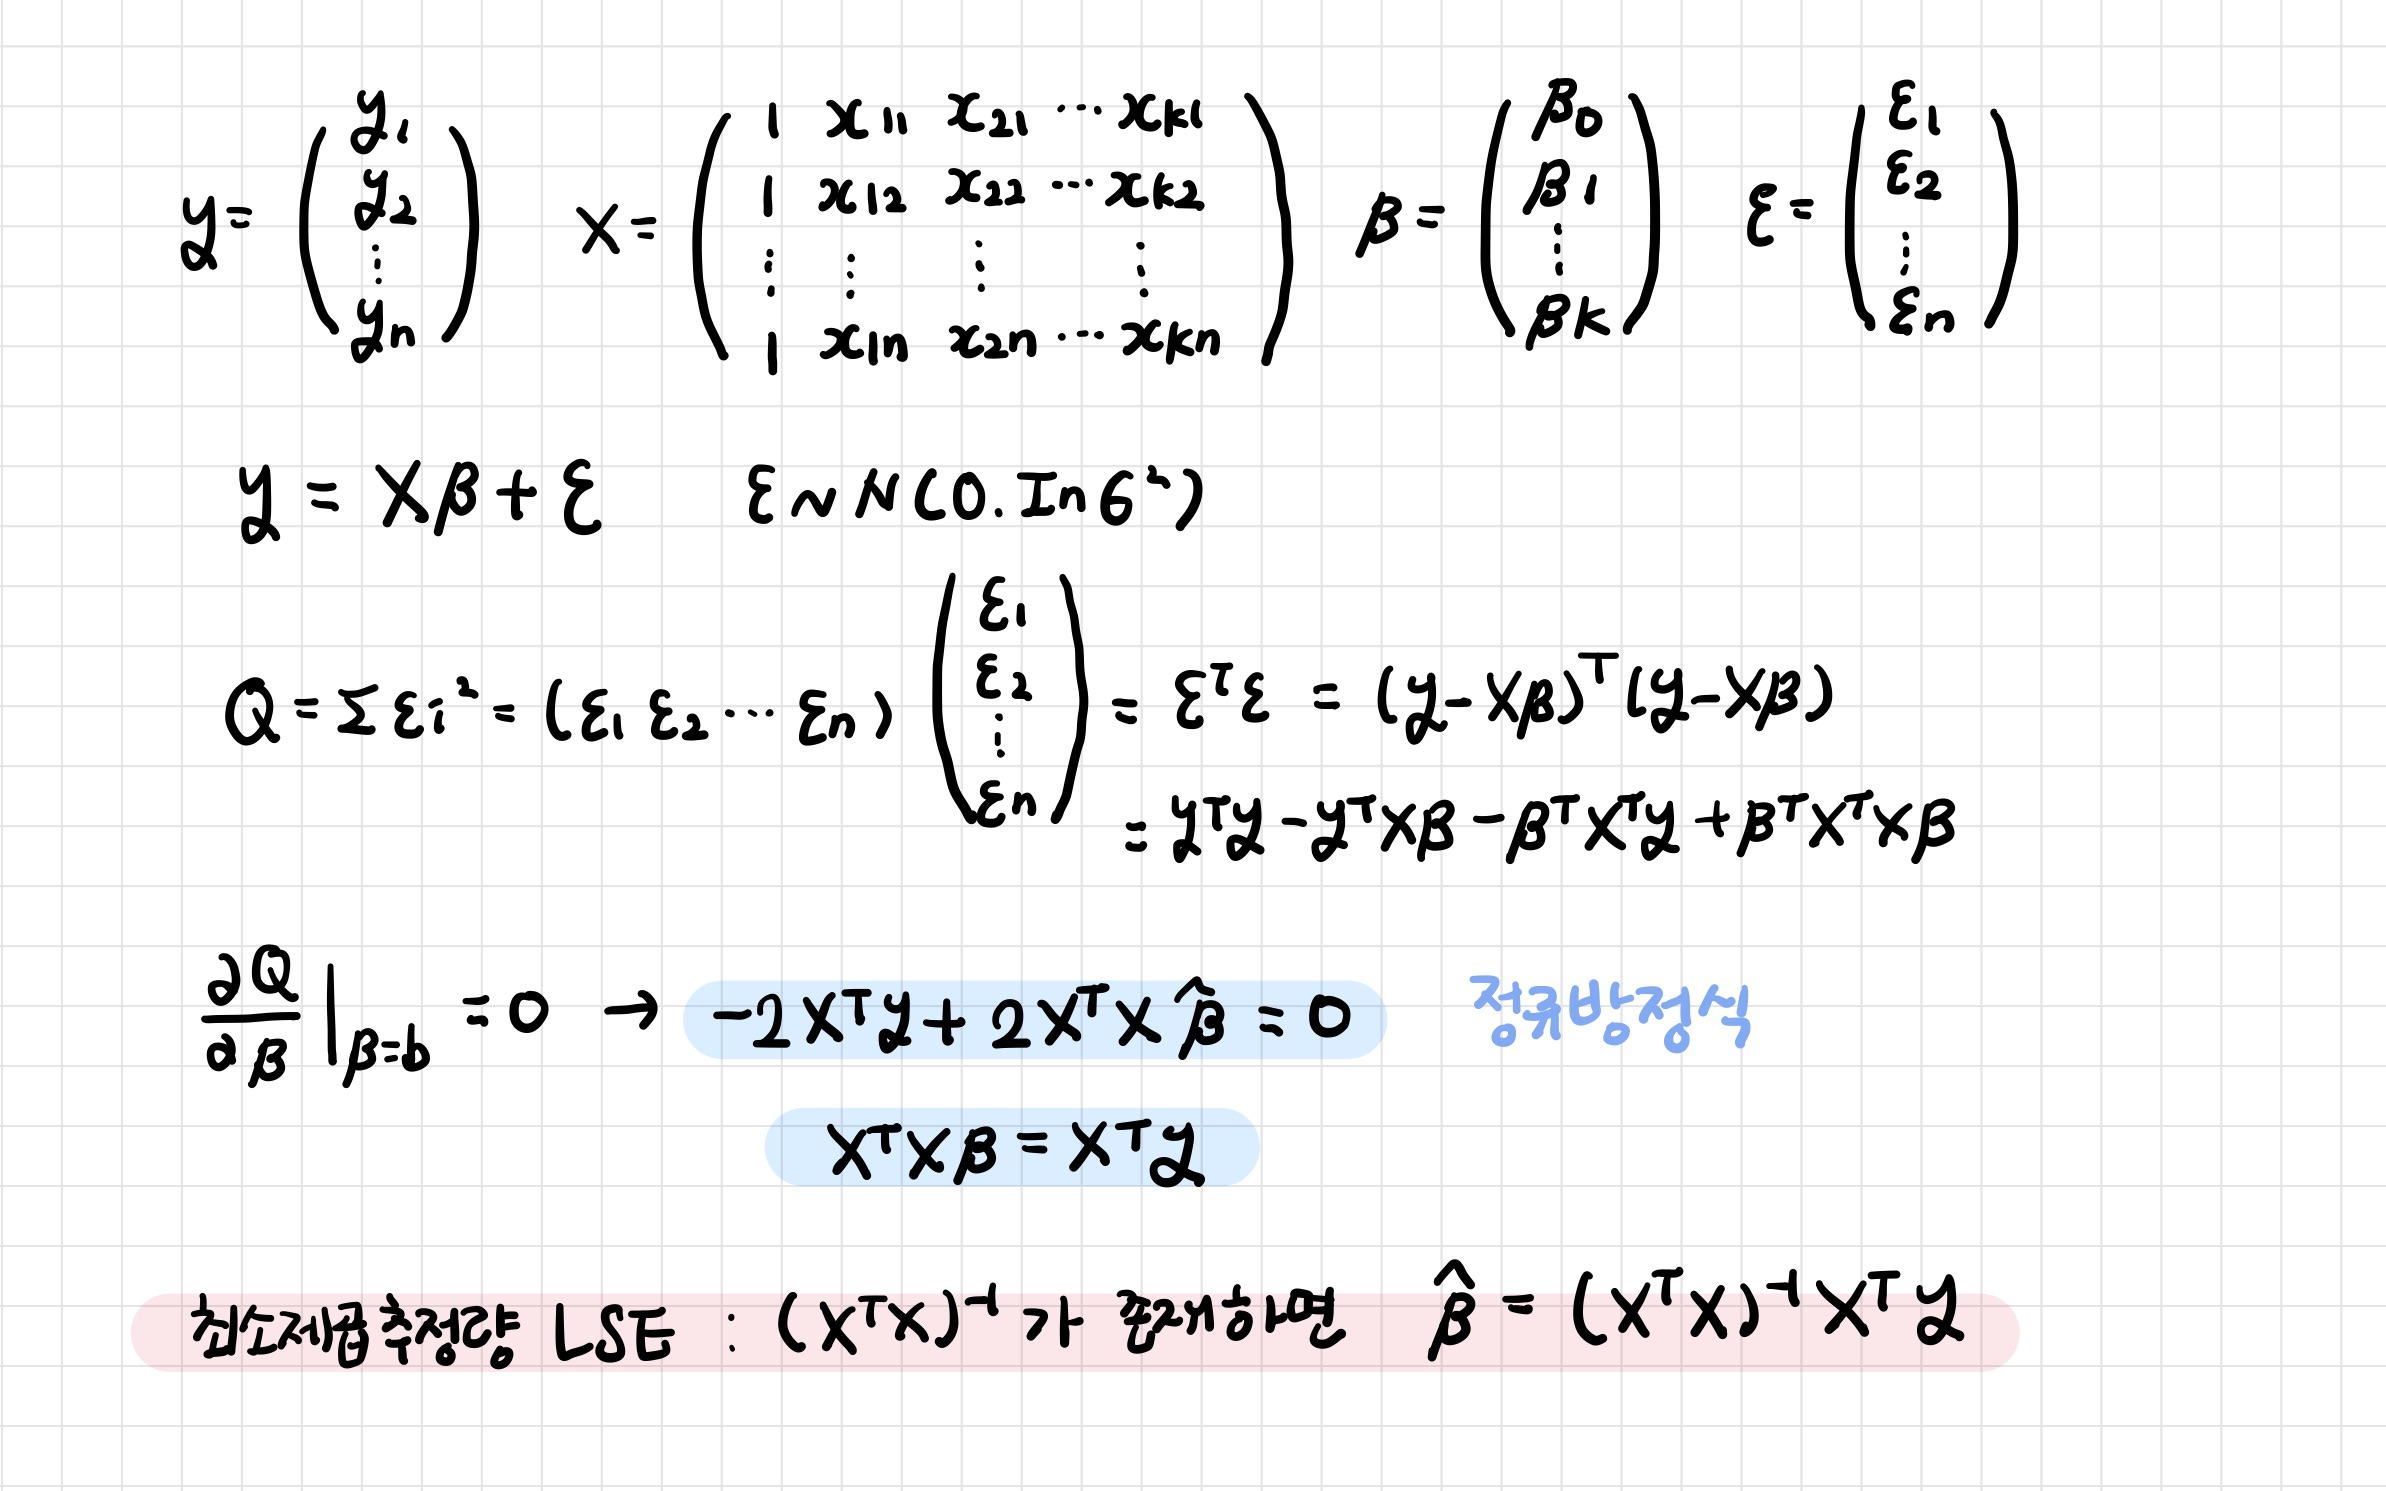 y = (y₁ y₂ ⋮ yₙ) X = (1 x₁₁ x₂₁ ⋯ xₖ₁ 1 x₁₂ x₂₂ ⋯ xₖ₂ ⋮ ⋮ ⋮ ⋮ 1 x₁ₙ x₂ₙ ⋯ xₖₙ) β = (β₀ β₁ ⋮ βₖ) ε = (ε₁ ε₂ ⋮ εₙ)
y = Xβ + ε ε ~ N(0. Iₙσ²)
Q = Σεᵢ² = (ε₁ ε₂ ⋯ εₙ) (ε₁ ε₂ ⋮ εₙ) = εᵀε = (y - Xβ)ᵀ(y - Xβ)
= yᵀy - yᵀXβ - βᵀXᵀy + βᵀXᵀXβ
∂Q/∂β |β=b = 0 → -2Xᵀy + 2XᵀXβ̂ = 0 정규방정식
XᵀXβ = Xᵀy
최소제곱추정량 LSE : (XᵀX)⁻¹가 존재하면 β̂ = (XᵀX)⁻¹Xᵀy